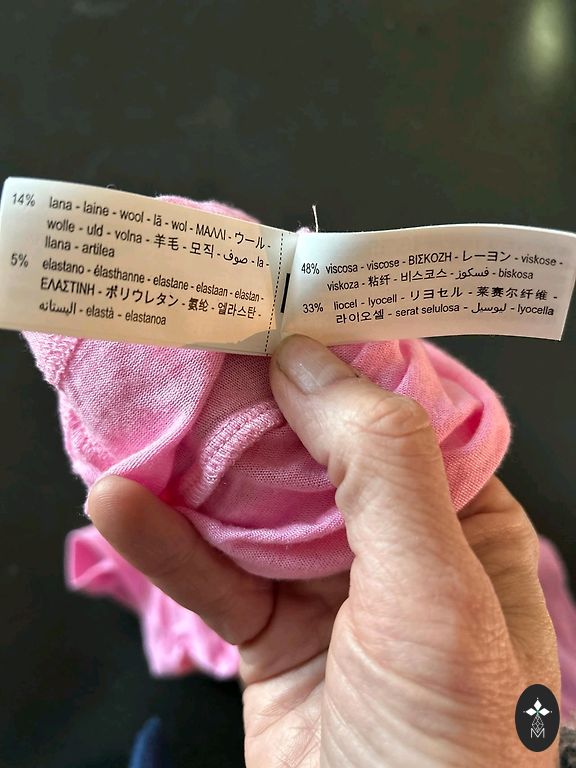 14% lana - laine - wool - lã - wol - ΜΑΛΛΙ - ウール -
wolle - uld - volna - 羊毛 - 모직 - صوف - la -
llana - artilea
5% elastano - élasthanne - elastane - elastaan - elastan -
ΕΛΑΣΤΙΝΗ - ポリウレタン - 氨纶 - 엘라스탄 -
اليستانه - elastà - elastanoa
48% viscosa - viscose - ΒΙΣΚΟΖΗ - レーヨン - viskose -
viskoza - 粘纤 - 비스코스 - فسكوز - biskosa
33% liocel - lyocell - リヨセル - 莱赛尔纤维 -
라이오셀 - serat selulosa - ليوسيل - lyocella